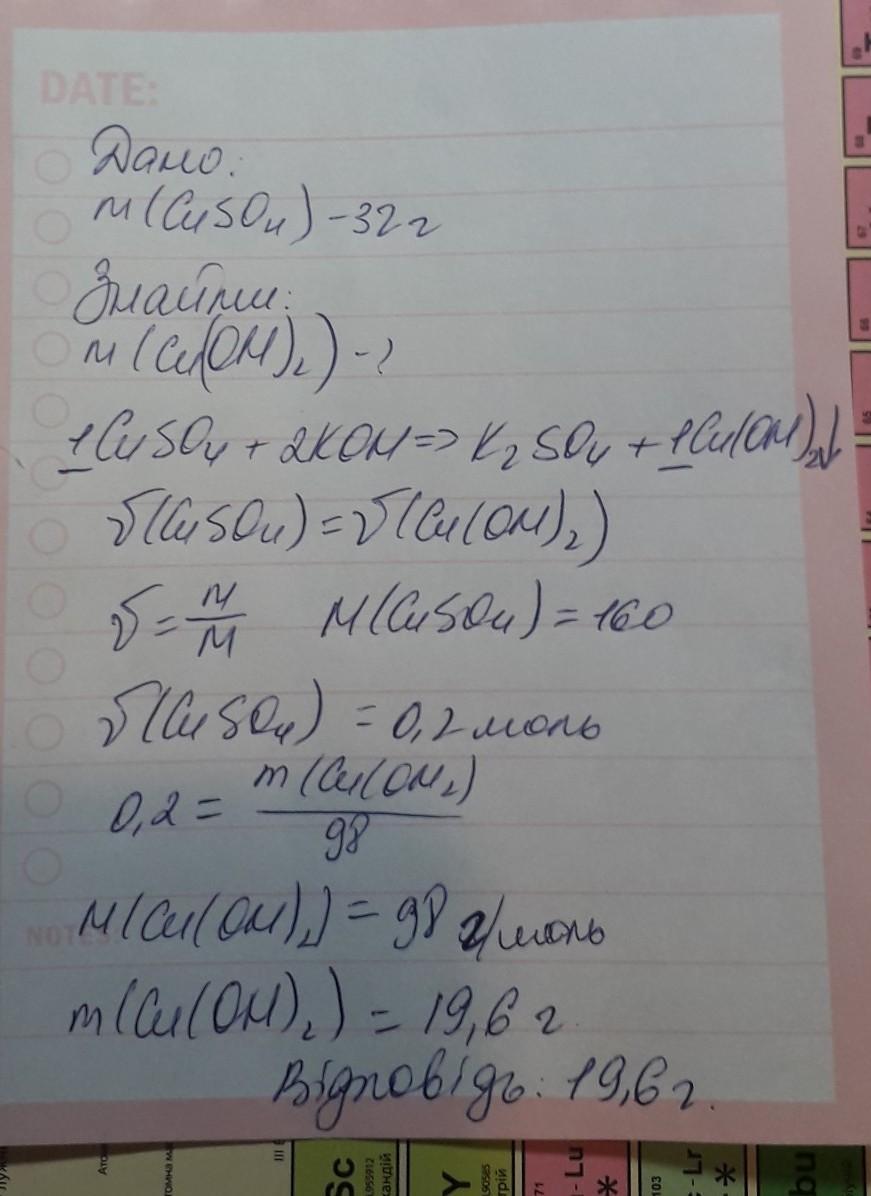 DATE:
Дано:
m(CuSO4) - 32 г
Знайти:
m(Cu(OH)2) - ?
1CuSO4 + 2KOH => K2SO4 + 1Cu(OH)2↓
ν(CuSO4) = ν(Cu(OH)2)
ν = m/M M(CuSO4) = 160
ν(CuSO4) = 0,2 моль
0,2 = m(Cu(OH2)/98
NOTES:
M(Cu(OH)2) = 98 г/моль
m(Cu(OH)2) = 19,6 г
Відповідь: 19,6 г.
III
Sc
кандій
Y
.90585
трій
71
- Lu
*
103
- Lr
*